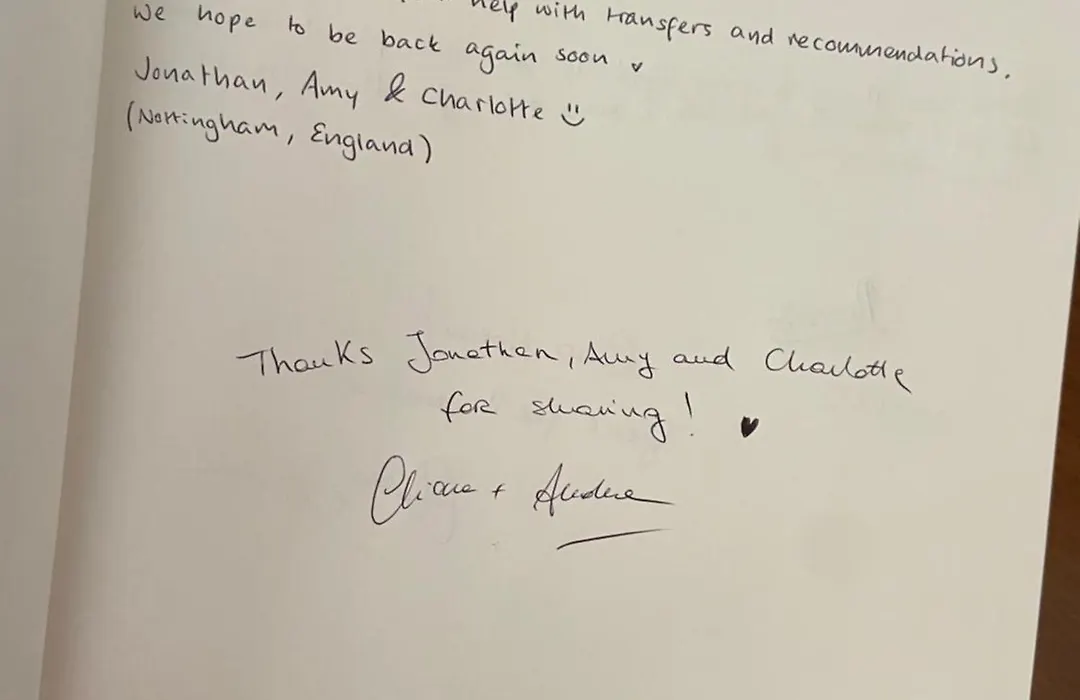 help with transfers and recommendations.
We hope to be back again soon
Jonathan, Amy & Charlotte
(Nottingham, England)
Thanks Jonathan, Amy and Charlotte
for sharing!
+